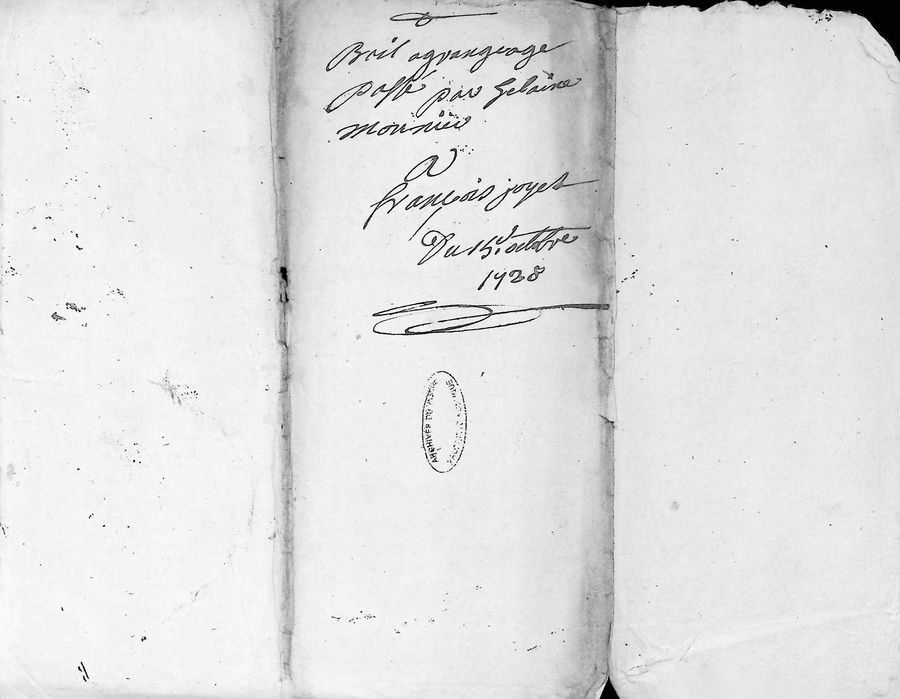 Bail agrangeage
passé par Gelaine
mounier
A
francois joyet
Du 15e octobre
1728
ARCHIVES DU